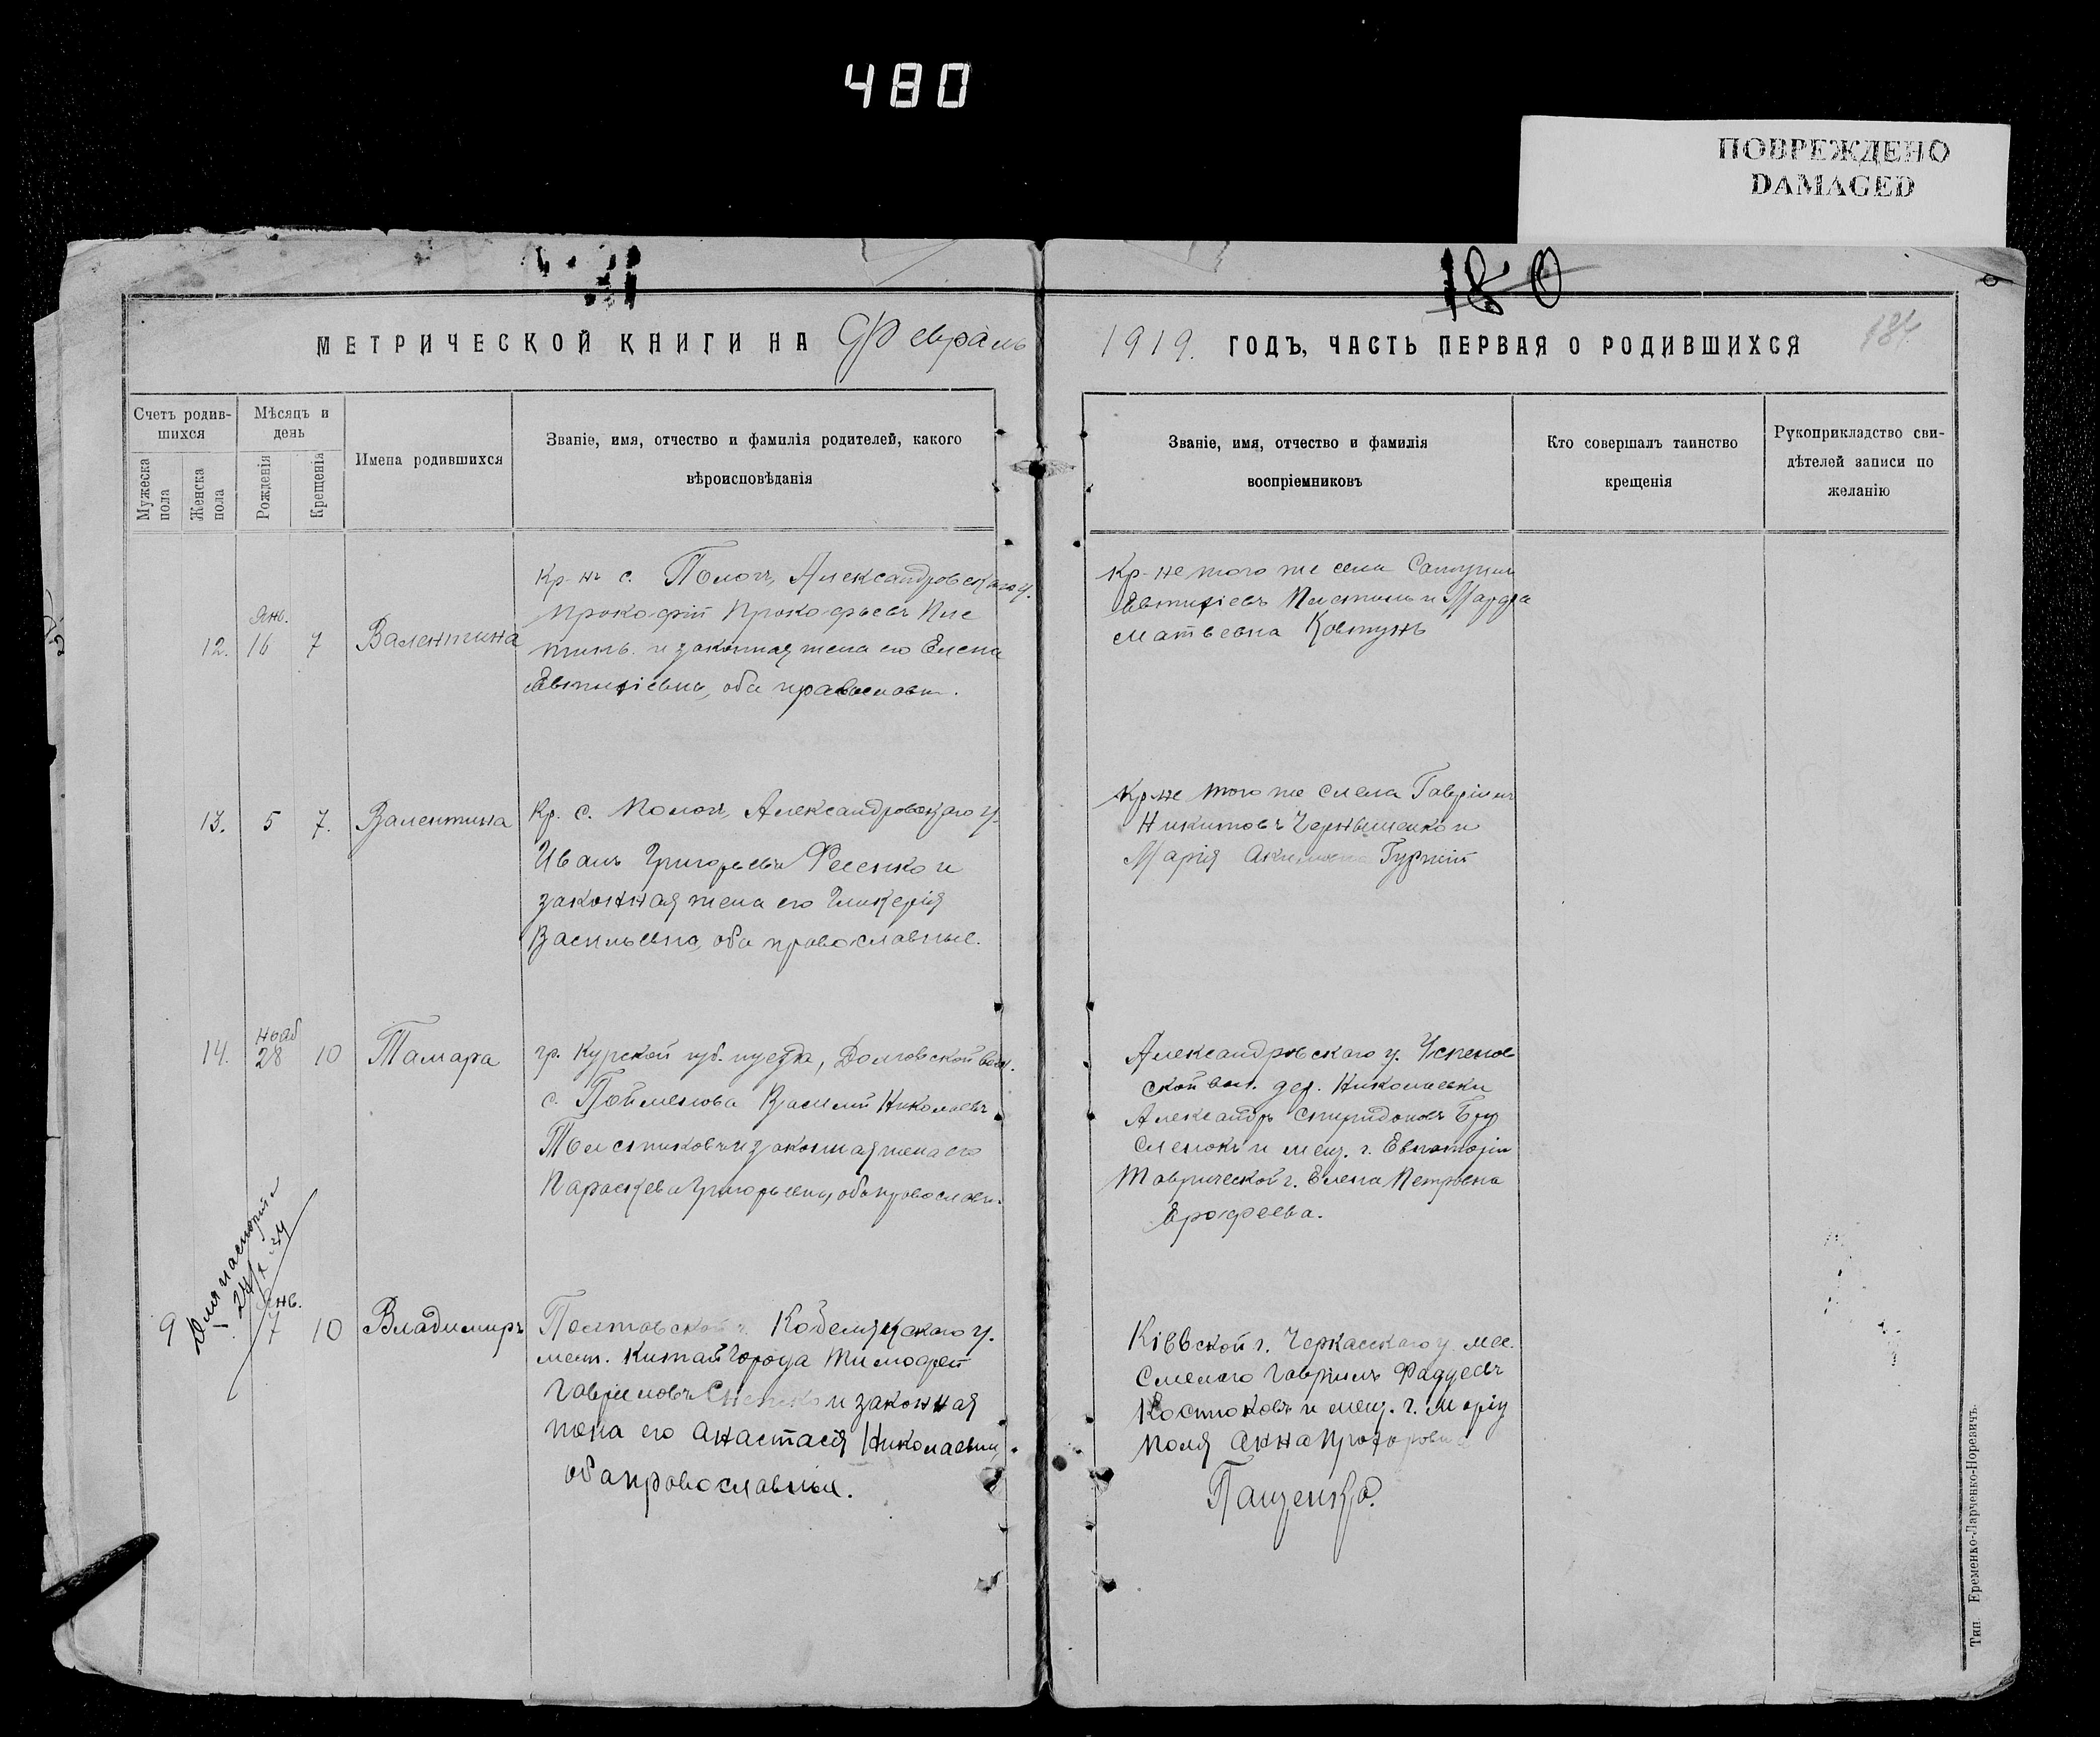 480
ПОВРЕЖДЕНО
DAMAGED
180
МЕТРИЧЕСКОЙ КНИГИ НА Февраль 1919. ГОДЪ, ЧАСТЬ ПЕРВАЯ О РОДИВШИХСЯ
Счетъ родив-
шихся
Мужеска пола
Женска пола
Мѣсяцъ и
день
Рожденія
Крещенія
Имена родившихся
Званіе, имя, отчество и фамилія родителей, какого
вѣроисповѣданія
Званіе, имя, отчество и фамилія
воспріемниковъ
Кто совершалъ таинство
крещенія
Рукоприкладство сви-
дѣтелей записи по
желанію
12.
Янв.
16 7
Валентина
Кр-нъ с. Пологъ, Александровскаго у.
Прокофій Прокофьевъ Пле
тинь и законная жена его Елена
Евтихіевна, оба православн.
Кр-не того же села
Евтихіевъ и Марфа
Матвеевна Ковтунъ
13. 5 7.
Валентина
Кр. с. Пологъ, Александровскаго у.
Иванъ Григорьевъ Фесенко и
законная жена его Гликерія
Васильевна, оба православные.
Кр-не того же села Гавріилъ
Никитовъ и
Марія Гуржій
14.
Нояб
28 10
Тамара
гр. Курской губ. уѣзда, Долговской вол.
с. Василій Николаевъ
Толстиковъ и законная жена его
Параскева Григорьевна, оба православн.
Александровскаго у. Успенов
ской вол. дер. Николаевки
Александръ Спиридоновъ
и мещ. г. Евпаторіи
Таврической г. Елена Петровна
Ерофеева.
Для паспорта
9
Янв.
7 10
Владимиръ
Полтавской г. Кобелякскаго у.
мест. Китайгорода Тимофей
Гавриловъ и законная
жена его Анастасія Николаевна,
оба православные.
Кіевской г. Черкасскаго у. мес.
Смелаго Гавріилъ Фаддеевъ
Костюковъ и мещ. г. Маріу
поля Анна Прохоровна
Пащенко.
Тип Еременко-Ларченко-Норевичъ.